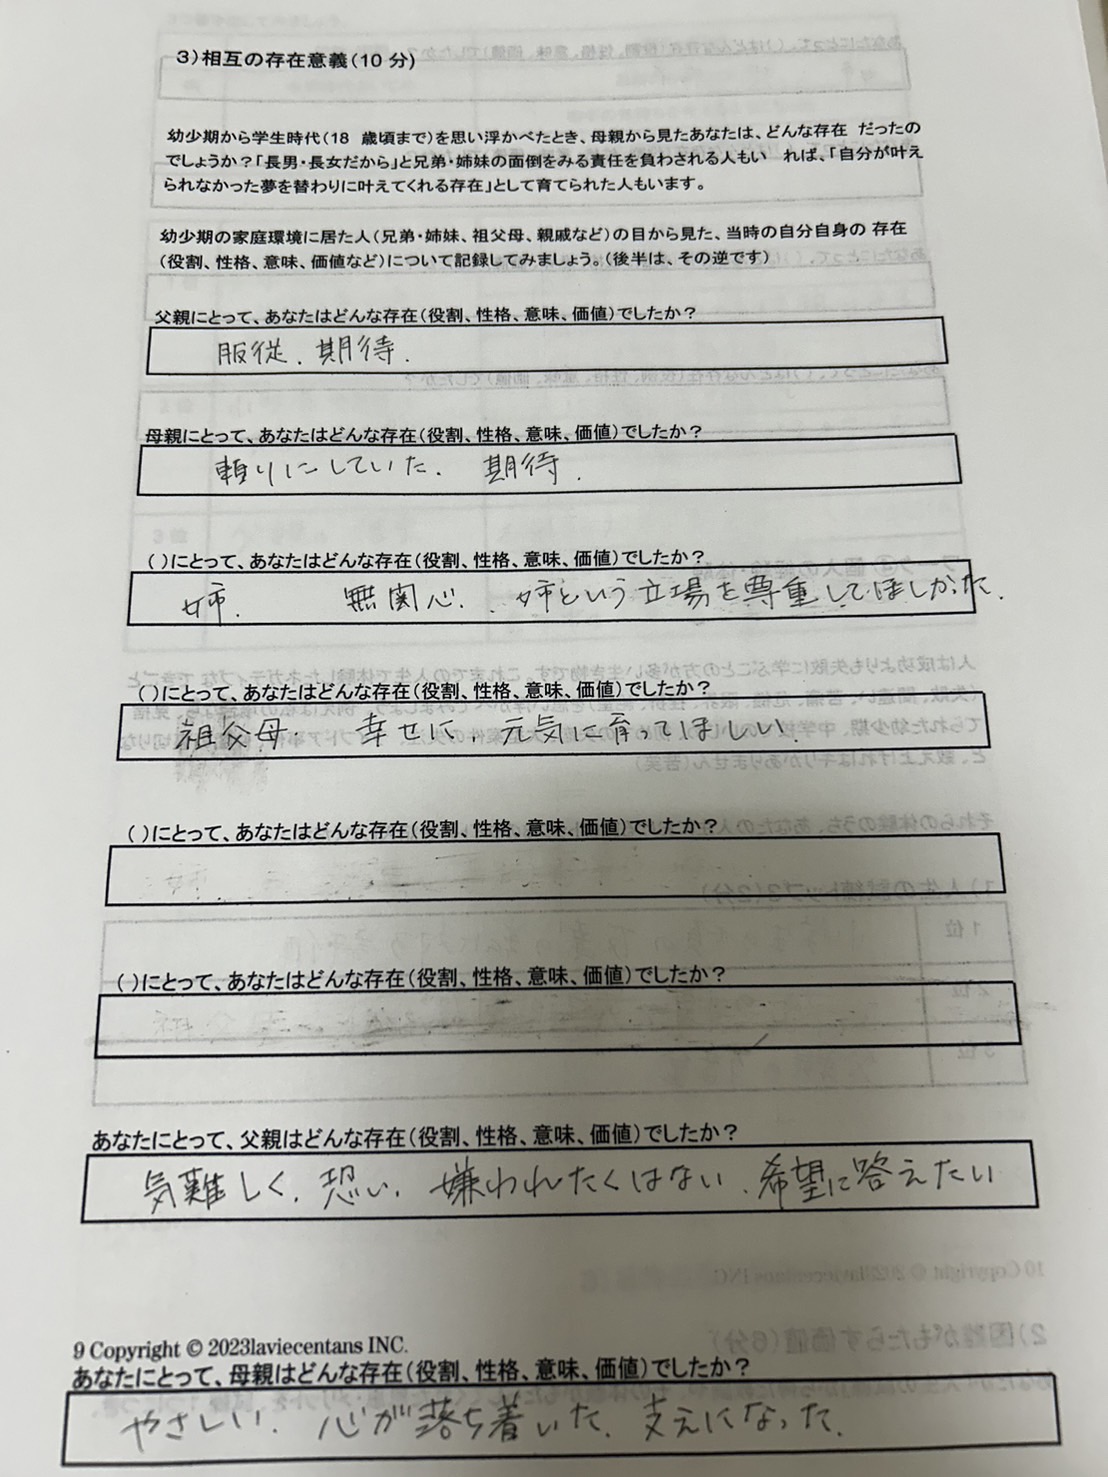 3)相互の存在意義(10 分)
幼少期から学生時代(18 歳頃まで)を思い浮かべたとき、母親から見たあなたは、どんな存在 だったの
でしょうか?「長男・長女だから」と兄弟・姉妹の面倒をみる責任を負わされる人もい れば、「自分が叶え
られなかった夢を替わりに叶えてくれる存在」として育てられた人もいます。
幼少期の家庭環境に居た人(兄弟・姉妹、祖父母、親戚など)の目から見た、当時の自分自身の 存在
(役割、性格、意味、価値など)について記録してみましょう。(後半は、その逆です)
父親にとって、あなたはどんな存在(役割、性格、意味、価値)でしたか?
服従. 期待.
母親にとって、あなたはどんな存在(役割、性格、意味、価値)でしたか?
頼りにしていた. 期待.
( )にとって、あなたはどんな存在(役割、性格、意味、価値)でしたか?
姉. 無関心. 姉という立場を尊重してほしかった.
( )にとって、あなたはどんな存在(役割、性格、意味、価値)でしたか?
祖父母. 幸せに, 元気に育ってほしい.
( )にとって、あなたはどんな存在(役割、性格、意味、価値)でしたか?
( )にとって、あなたはどんな存在(役割、性格、意味、価値)でしたか?
あなたにとって、父親はどんな存在(役割、性格、意味、価値)でしたか?
気難しく. 恐い. 嫌われたくはない. 希望に答えたい
9 Copyright © 2023laviecentans INC.
あなたにとって、母親はどんな存在(役割、性格、意味、価値)でしたか?
やさしい. 心が落ち着いた. 支えになった.